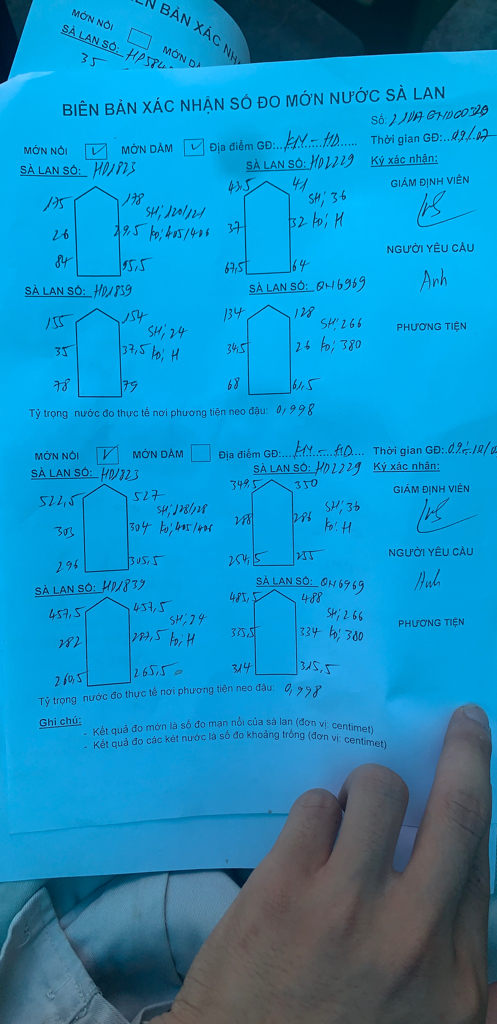 ÊN BẢN XÁC NH
MỚN NỔI
MỚN D
SÀ LAN SỐ:
35
BIÊN BẢN XÁC NHẬN SỐ ĐO MỚN NƯỚC SÀ LAN
Số:
MỚN NỔI ✓ MỚN DẰM ✓ Địa điểm GĐ: KM - HD Thời gian GĐ: 09/07
SÀ LAN SỐ: HD1823 SÀ LAN SỐ: HD2229 Ký xác nhận:
GIÁM ĐỊNH VIÊN
175 178 43,5 41
SH; 120/121 SH; 36
26 29,5 Ko; 405/406 37 32 Ko; H
84 95,5 67,5 64
NGƯỜI YÊU CẦU
Anh
SÀ LAN SỐ: HD1839 SÀ LAN SỐ: QN6969
155 154 134 128
SH; 24 SH; 266
PHƯƠNG TIỆN
35 37,5 Ko; H 34,5 26 Ko; 380
78 79 68 61,5
Tỷ trọng nước đo thực tế nơi phương tiện neo đậu: 0,998
MỚN NỔI ✓ MỚN DẰM Địa điểm GĐ: KM - HD Thời gian GĐ: 09
SÀ LAN SỐ: HD1823 SÀ LAN SỐ: HD2229 Ký xác nhận:
522,5 527 349,5 350
GIÁM ĐỊNH VIÊN
SH; 128/128 SH; 36
303 304 Ko; 405/406 288 286 Ko; H
296 305,5 254,5 255
NGƯỜI YÊU CẦU
Anh
SÀ LAN SỐ: HD1839 SÀ LAN SỐ: QN6969
457,5 457,5 485,5 488
SH; 24 SH; 266
PHƯƠNG TIỆN
282 287,5 Ko; H 335,5 334 Ko; 380
260,5 265,5 314 315,5
Tỷ trọng nước đo thực tế nơi phương tiện neo đậu: 0,998
Ghi chú:
- Kết quả đo mớn là số đo mạn nổi của sà lan (đơn vị: centimet)
- Kết quả đo các két nước là số đo khoảng trống (đơn vị: centimet)